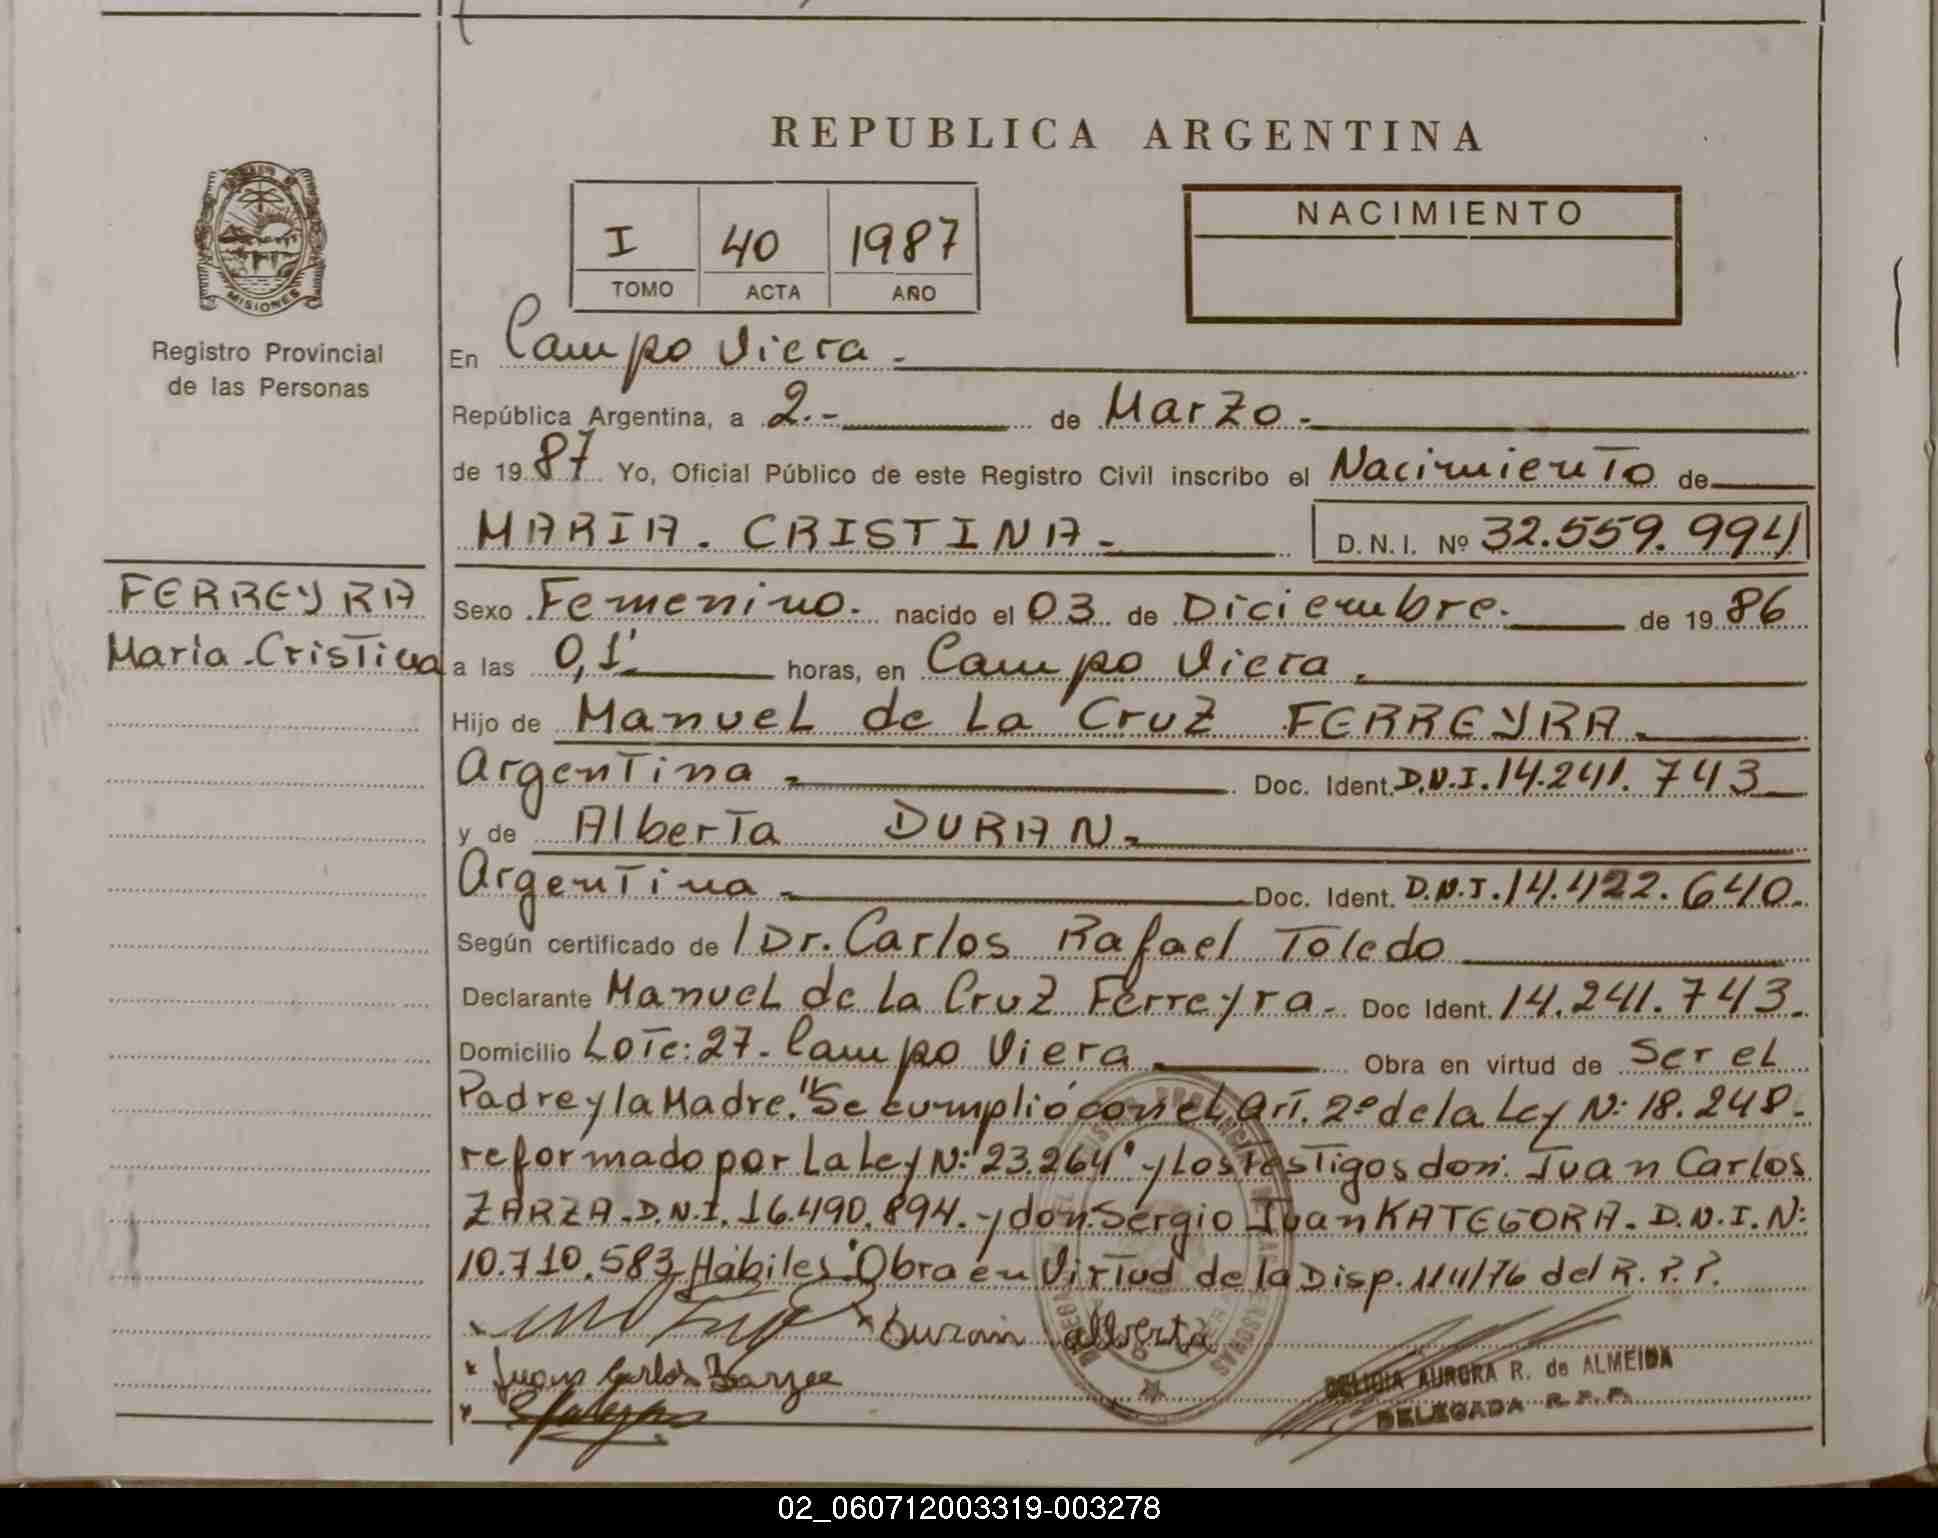 REPUBLICA ARGENTINA
I 40 1987
TOMO ACTA AÑO
NACIMIENTO
MISIONES
Registro Provincial
de las Personas
En Campo Viera.
República Argentina, a 2.- de Marzo.
de 1987 Yo, Oficial Público de este Registro Civil inscribo el Nacimiento de
MARIA. CRISTINA.
D.N.I. Nº 32.559.994
FERREYRA
Maria.Cristina
Sexo Femenino. nacido el 03 de Diciembre. de 1986
a las 0,1' horas, en Campo Viera.
Hijo de Manuel de La Cruz FERREYRA.
Argentina. Doc. Ident. D.N.I. 14.241.743
y de Alberta DURAN.
Argentina. Doc. Ident. D.N.I. 14.422.640.
Según certificado de / Dr. Carlos Rafael Toledo
Declarante Manuel de La Cruz Ferreyra. Doc Ident. 14.241.743.
Domicilio Lote: 27. Campo Viera. Obra en virtud de Ser el
Padre y la Madre. "Se cumplió con el Art. 2º de la Ley Nº: 18.248.
reformado por La Ley Nº: 23.264" y Los testigos don: Juan Carlos
ZARZA. D.N.I. 16.490.894. y don: Sergio Juan KATEGORA. D.N.I. N:
10.710.583 Hábiles" Obra en Virtud de la Disp. 114/76 del R.P.P.
Duran allberta
Juan Carlos Zarza
DELICIA AURORA R. de ALMEIDA
DELEGADA R.P.P.
02_060712003319-003278